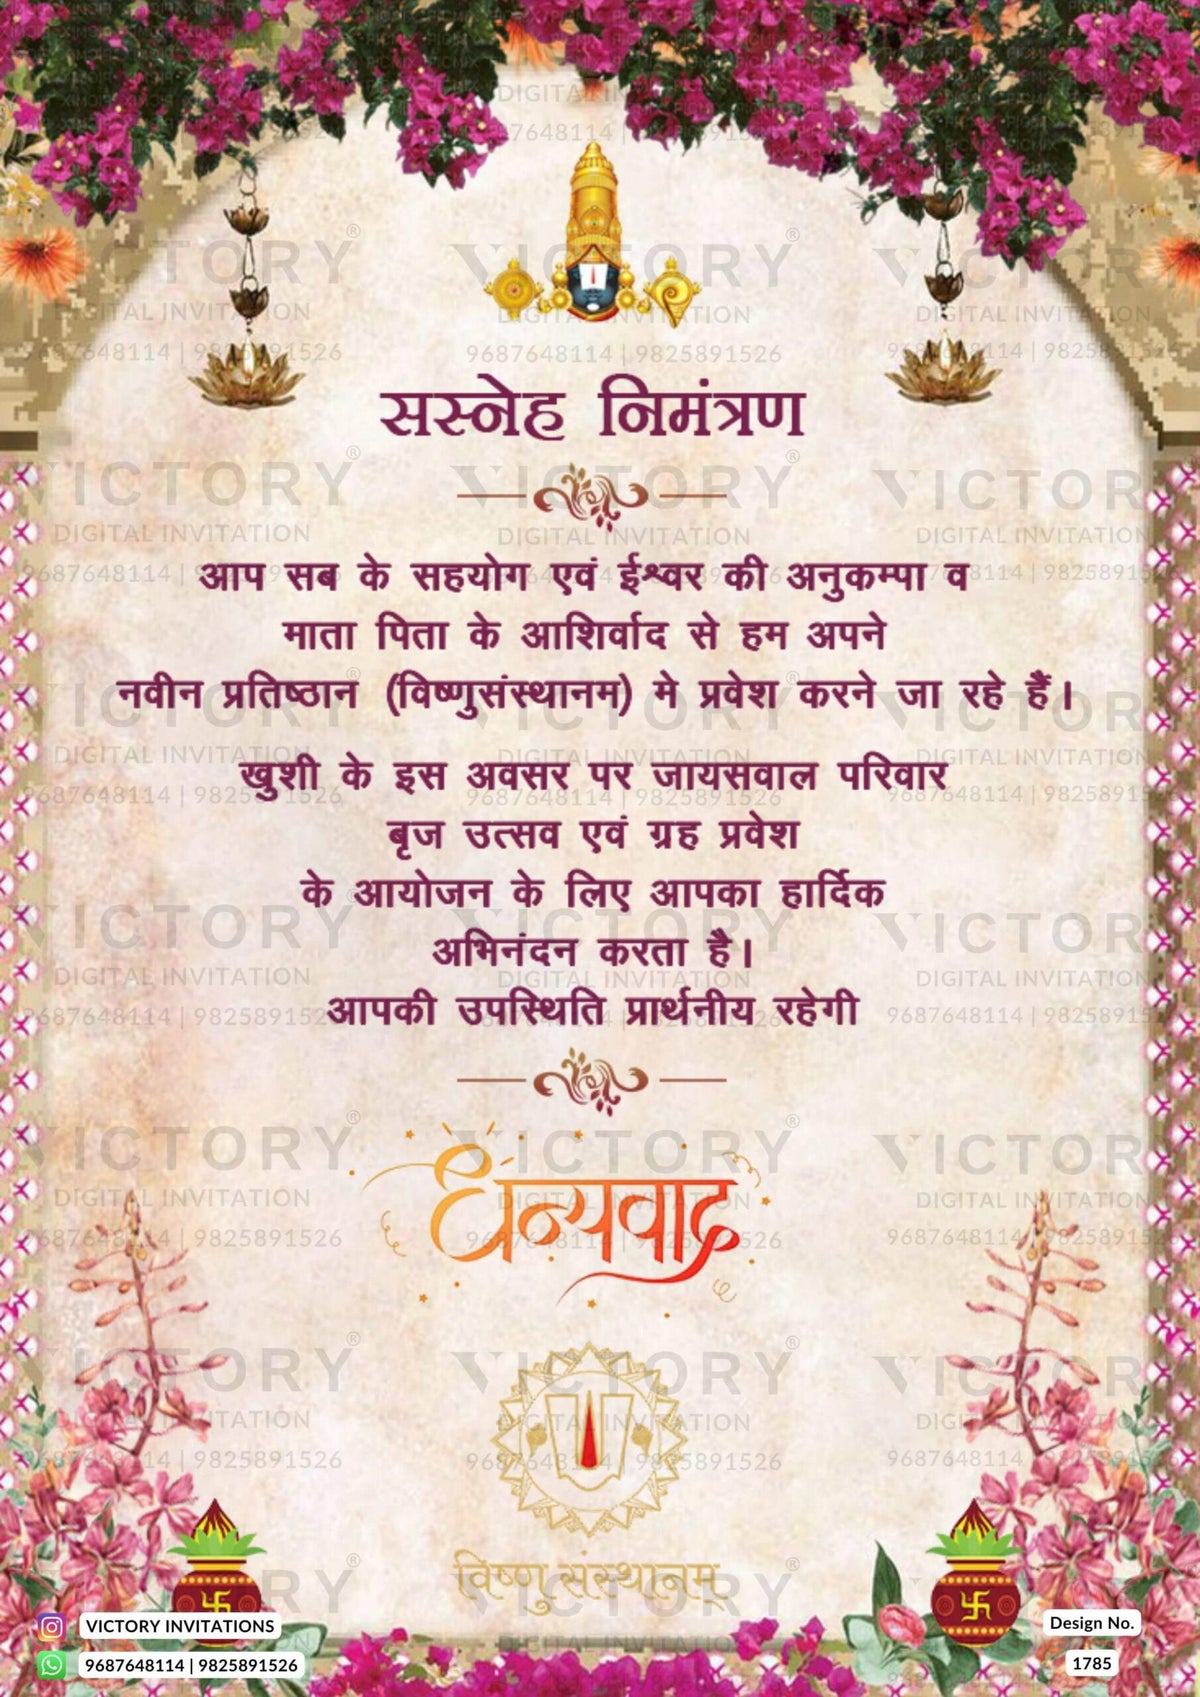 सस्नेह निमंत्रण
आप सब के सहयोग एवं ईश्वर की अनुकम्पा व
माता पिता के आशिर्वाद से हम अपने
नवीन प्रतिष्ठान (विष्णुसंस्थानम) मे प्रवेश करने जा रहे हैं।
खुशी के इस अवसर पर जायसवाल परिवार
बृज उत्सव एवं ग्रह प्रवेश
के आयोजन के लिए आपका हार्दिक
अभिनंदन करता है।
आपकी उपस्थिति प्रार्थनीय रहेगी
धन्यवाद
विष्णु संस्थानम्
VICTORY INVITATIONS
9687648114 | 9825891526
Design No.
1785
VICTORY®
DIGITAL INVITATION
9687648114 | 9825891526